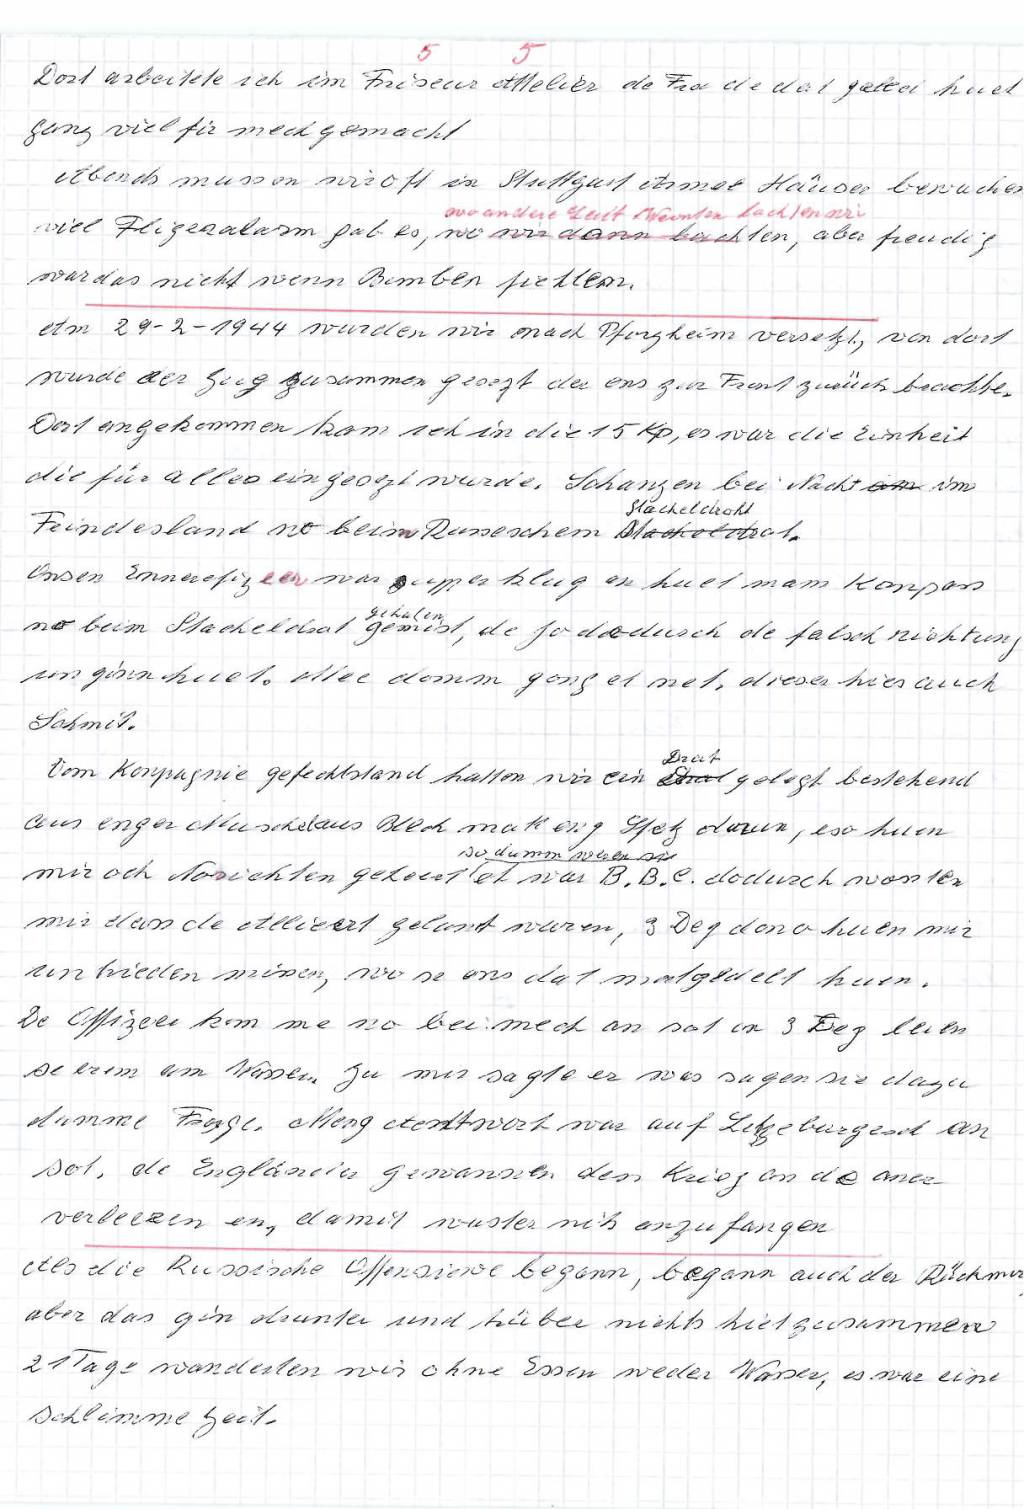 5 5
Dort arbeitete ich im Friseur Attelier de Fra de dat gelei huet
ganz viel fir mech gemacht
Abends mussen wir oft in Stuttgart Häuser bewachen
wo andere Leit Weinten lachten wir
viel Fligeralarm gab es, wo wir dann lachten, aber freudig
war das nicht wenn Bomben fiellen.
Am 29-2-1944 wurden wir nach Pforzheim versetzt, von dort
wurde der Zug zusammen gesezt der ens zur Front zurück brachte.
Dort angekommen kam ich in die 15 Kp, es war die Einheit
die für alles eingesezt wurde. Schanzen bei Nacht am im
Stacheldraht
Feindesland no beim Russeschem Stacheldrat.
Onsen war supper klug en huet mam Kompass
gehalen
no beim Stacheldrat gemist, de jo dodurch de falsch richtung
un ginn huet. Alles domm gong et net, dieser hies auch
Schmit.
Drat
Vom Kompagnie gefechtstand hatten wir ein Drat gelegt bestehend
aus enger Muschel aus Blech mat eng Spetz dorun, eso huen
so dumm waren sie
mir och Norichten gehouert et war B.B.C. dodurch wosten
mir dass de Alliert gelant waren, 3 Deg dono huen mir
untrieden missen, wo se ons dat matgedelt huen.
De Offizeer kom me no bei mech an sot an 3 Deg leien
se erem am Wasser. Zu mir sagte er was sagen sie dazu
dumme Frage. Meng Antwort war auf Letzeburgesch an
sot, de Engländer gewannen den Krieg an de aner
verleezen en, damit wuster nits anzufangen
Als die Russische Offensiewe begann, begann auch der Rückmar
aber das gin drunter und trüber nichts hielt zusammen
21 Tage wanderten wir ohne Essen weder Wasser, es war eine
schlimme Zeit.